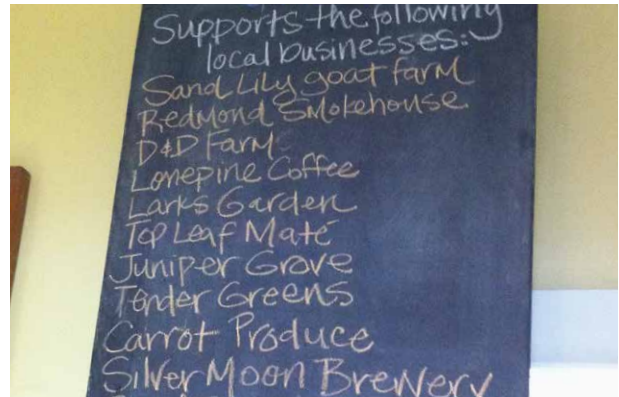 Supports the following
local businesses:
Sand Lily goat farm
Redmond Smokehouse
D&D Farm
Lonepine Coffee
Larks Garden
Top Leaf Maté
Juniper Grove
Tender Greens
Carrot Produce
Silver Moon Brewery